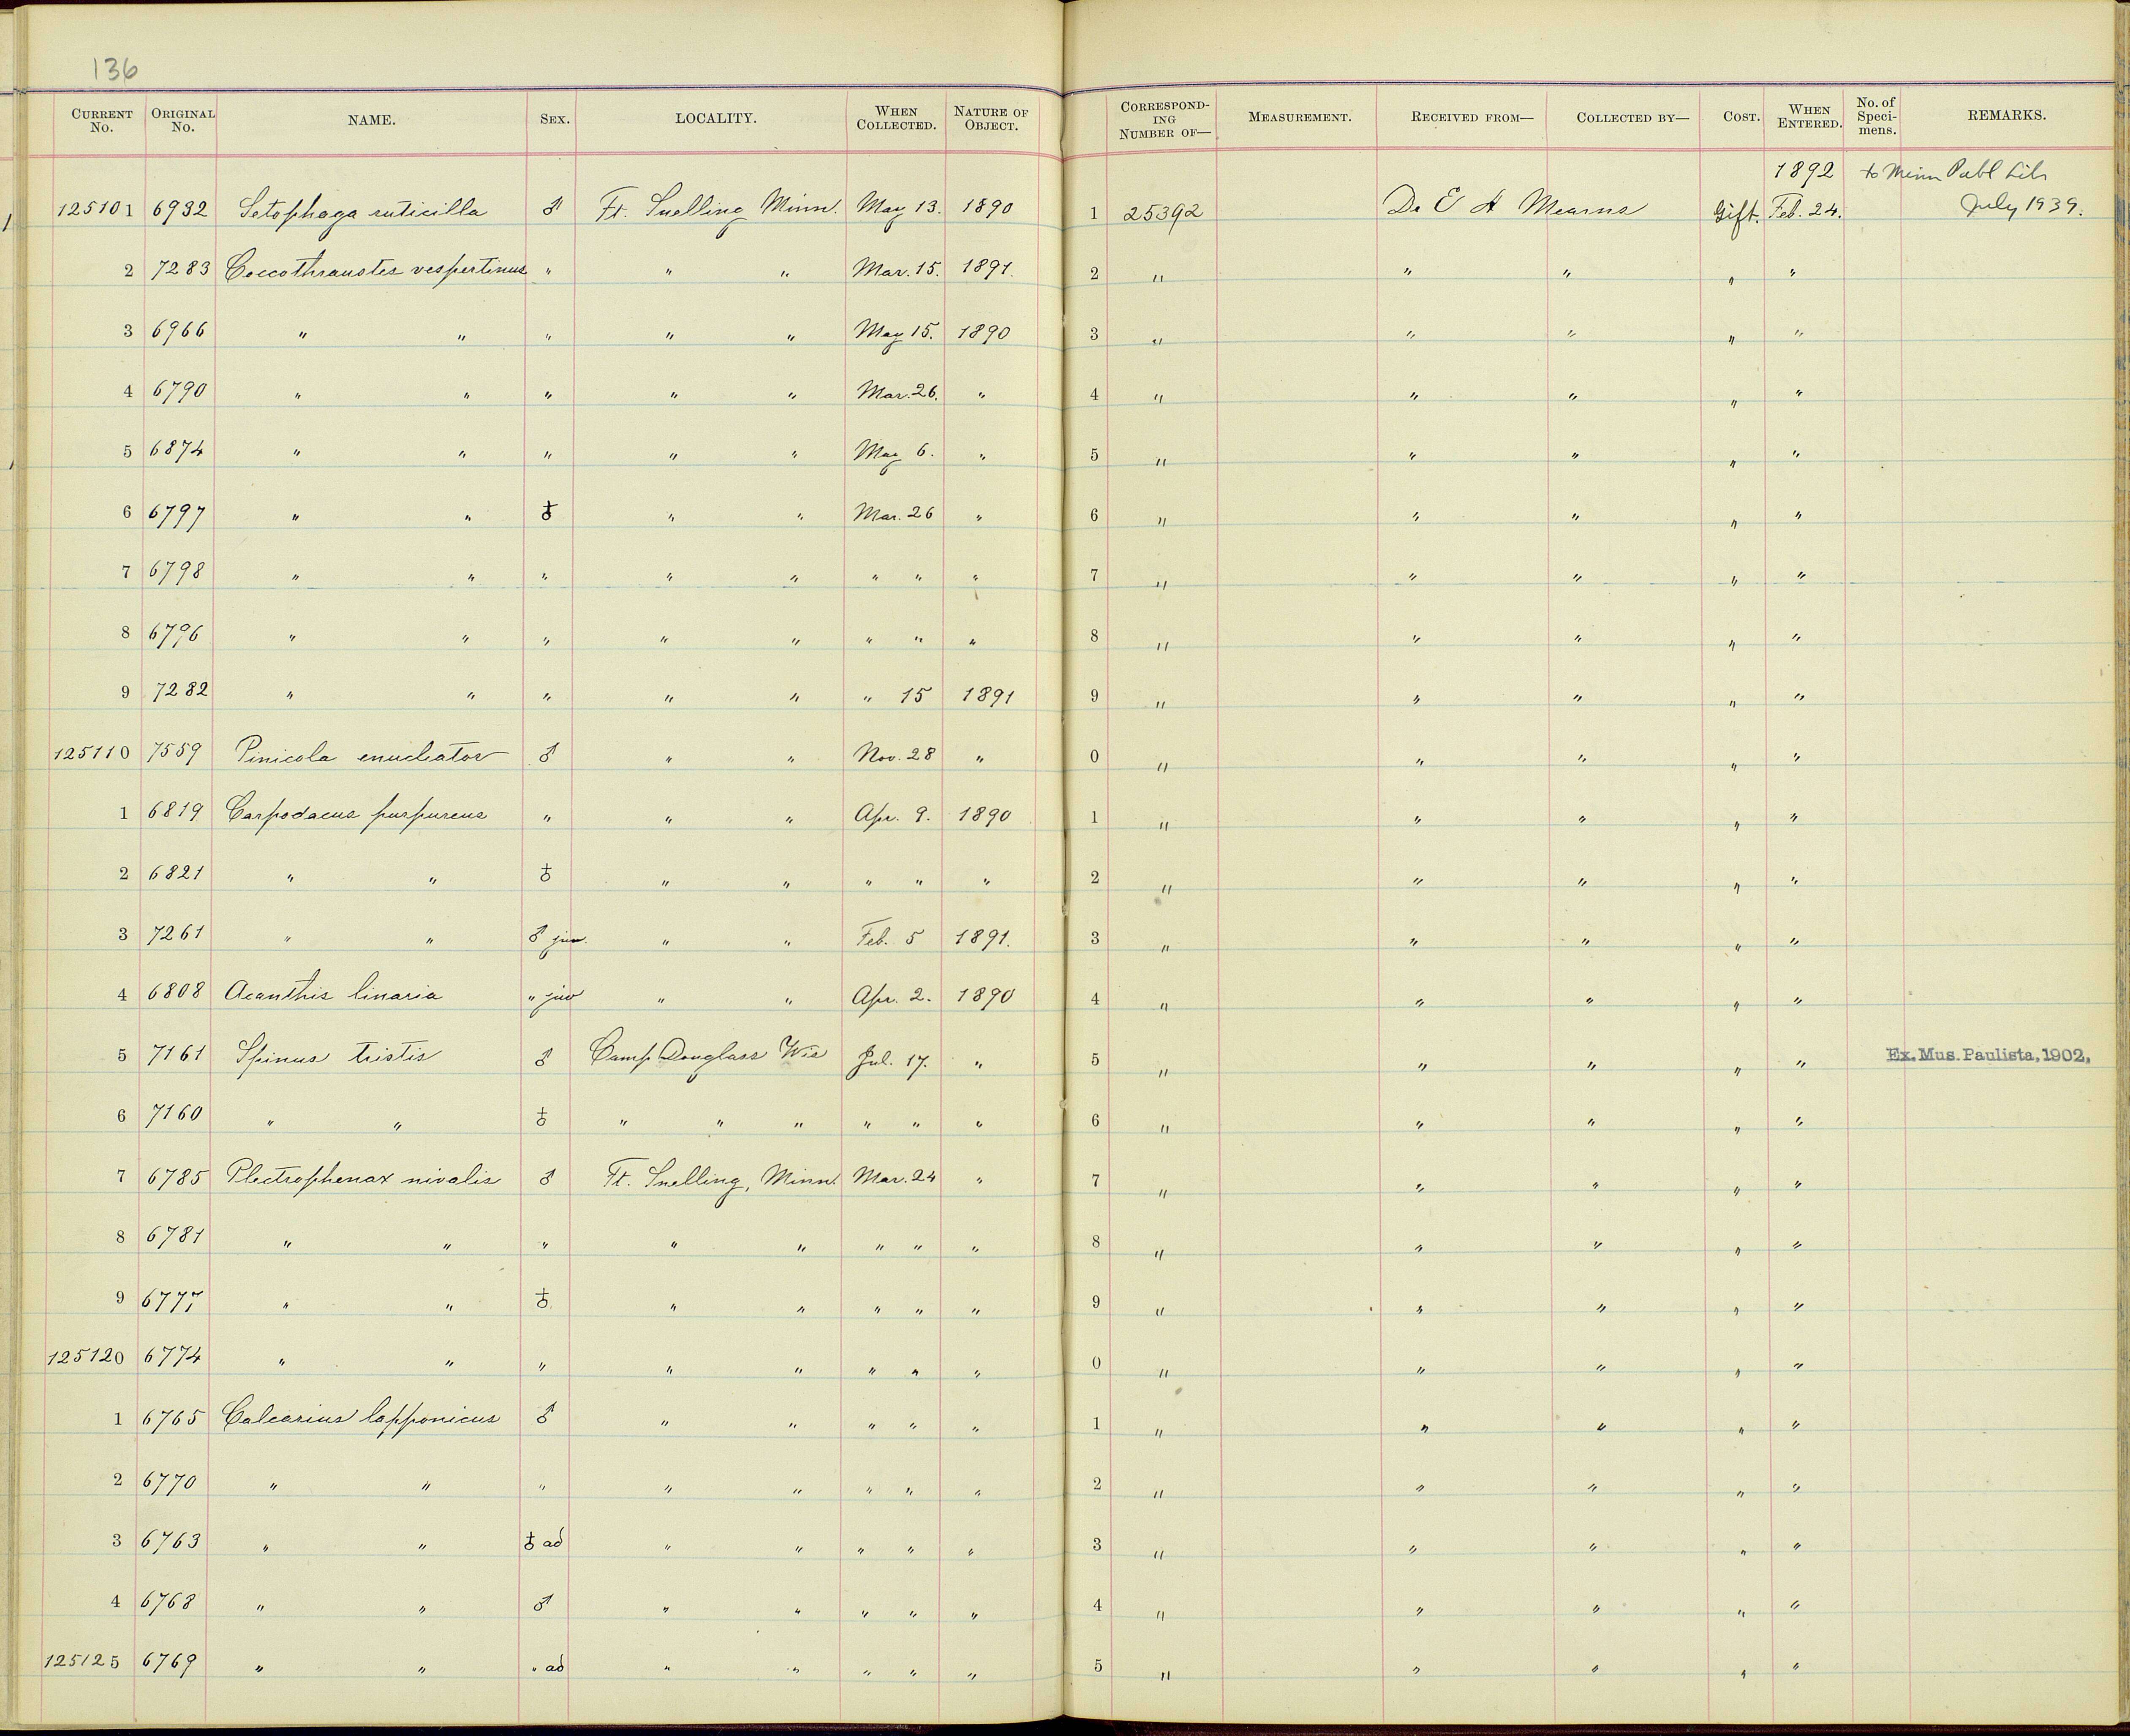 136
CURRENT No. ORIGINAL No. NAME. SEX. LOCALITY. WHEN COLLECTED. NATURE OF OBJECT. CORRESPONDING NUMBER OF— MEASUREMENT. RECEIVED FROM— COLLECTED BY— COST. WHEN ENTERED. No. of Specimens. REMARKS.
1892 to Minn Publ Lib
125101 6932 Setophaga ruticilla ♂ Ft. Snelling Minn. May 13. 1890 1 25392 Dr E A Mearns Gift. Feb. 24. July 1939.
2 7283 Coccothraustes vespertinus " " " Mar. 15. 1891. 2 " " " " "
3 6966 " " " " " May 15. 1890 3 " " " " "
4 6790 " " " " " Mar. 26. " 4 " " " " "
5 6874 " " " " " May 6. " 5 " " " " "
6 6797 " " ♀ " " Mar. 26 " 6 " " " " "
7 6798 " " " " " " " " 7 " " " " "
8 6796 " " " " " " " " 8 " " " " "
9 7282 " " " " " " 15 1891 9 " " " " "
125110 7559 Pinicola enucleator ♂ " " Nov. 28 " 0 " " " " "
1 6819 Carpodacus purpureus " " " Apr. 9. 1890 1 " " " " "
2 6821 " " ♀ " " " " " 2 " " " " "
3 7261 " " ♂ juv. " " Feb. 5 1891. 3 " " " " "
4 6808 Acanthis linaria " juv " " Apr. 2. 1890 4 " " " " "
5 7161 Spinus tristis ♂ Camp Douglass Wis Jul. 17. " 5 " " " " " Ex. Mus. Paulista, 1902.
6 7160 " " ♀ " " " " " " 6 " " " " "
7 6785 Plectrophenax nivalis ♂ Ft. Snelling, Minn. Mar. 24 " 7 " " " " "
8 6781 " " " " " " " " 8 " " " " "
9 6777 " " ♀ " " " " " 9 " " " " "
125120 6774 " " " " " " " " 0 " " " " "
1 6765 Calcarius lapponicus ♂ " " " " " 1 " " " " "
2 6770 " " " " " " " " 2 " " " " "
3 6763 " " ♀ ad " " " " " 3 " " " " "
4 6768 " " ♂ " " " " " 4 " " " " "
125125 6769 " " " ad " " " " " 5 " " " " "